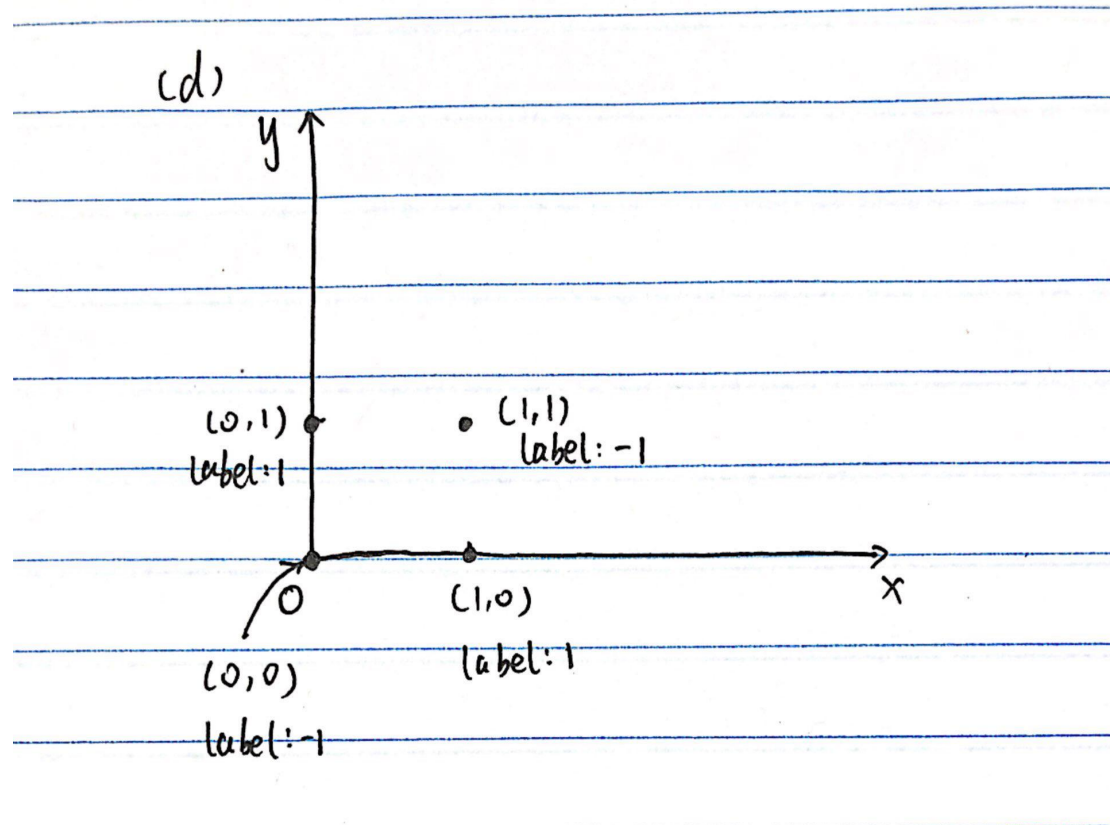 (d)
y
(0,1)
label:1
(1,1)
label:-1
0
(1,0)
x
label:1
(0,0)
label:-1